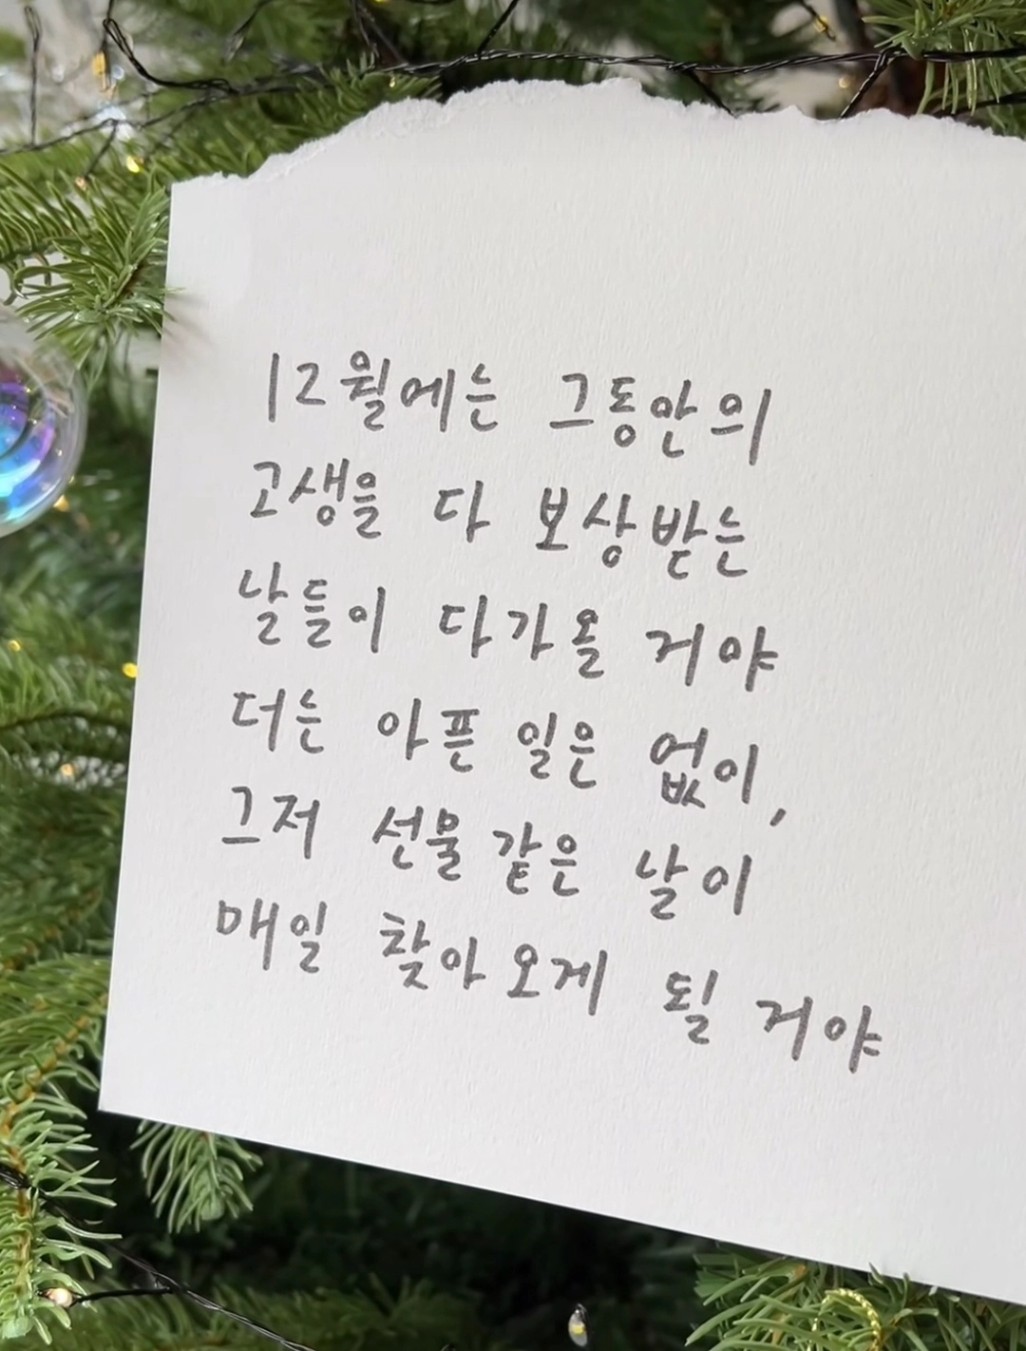 12월에는 그동안의
고생을 다 보상받는
날들이 다가올 거야
더는 아픈 일은 없이,
그저 선물 같은 날이
매일 찾아 오게 될 거야